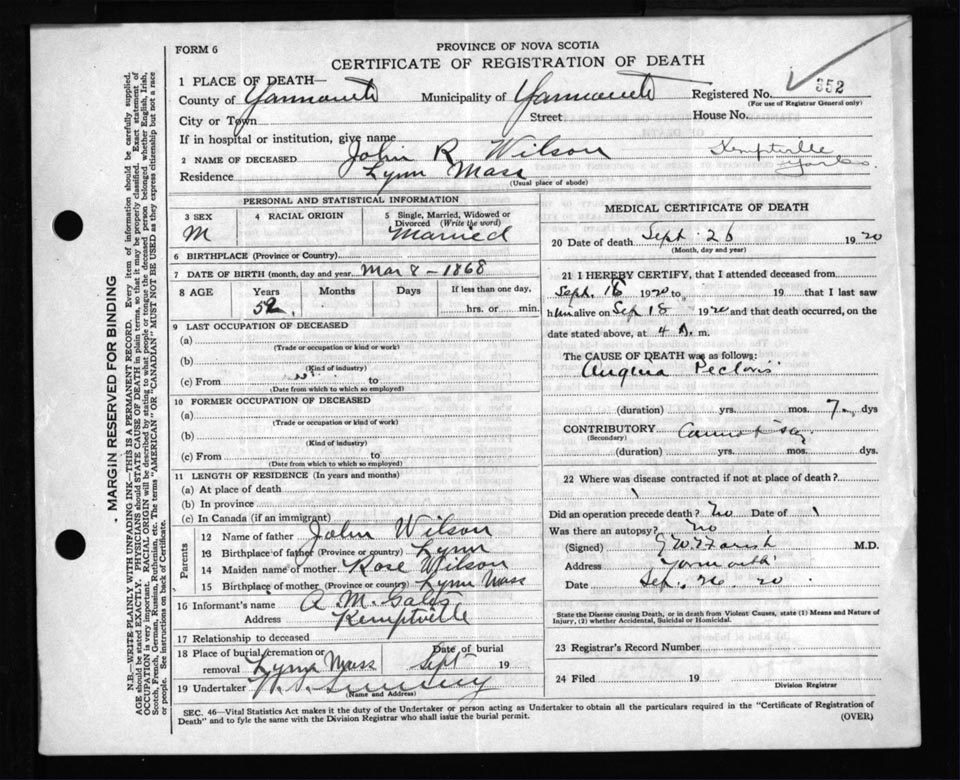 FORM 6
PROVINCE OF NOVA SCOTIA
CERTIFICATE OF REGISTRATION OF DEATH
1 PLACE OF DEATH—
County of Yarmouth Municipality of Yarmouth Registered No. 352
(For use of Registrar General only)
City or Town Street House No.
If in hospital or institution, give name
2 NAME OF DECEASED John R Wilson Kemptville
Residence Lynn Mass
(Usual place of abode)
PERSONAL AND STATISTICAL INFORMATION
3 SEX 4 RACIAL ORIGIN 5 Single, Married, Widowed or Divorced (Write the word)
M Married
6 BIRTHPLACE (Province or Country)
7 DATE OF BIRTH (month, day and year) Mar 8 - 1868
8 AGE Years Months Days If less than one day,
52 hrs. or min.
9 LAST OCCUPATION OF DECEASED
(a)
(Trade or occupation or kind or work)
(b)
(Kind of industry)
(c) From to
(Date from which to which so employed)
10 FORMER OCCUPATION OF DECEASED
(a)
(Trade or occupation or kind of work)
(b)
(Kind of industry)
(c) From to
(Date from which to which so employed)
11 LENGTH OF RESIDENCE (In years and months)
(a) At place of death
(b) In province
(c) In Canada (if an immigrant)
Parents
12 Name of father John Wilson
13 Birthplace of father (Province or country) Lynn
14 Maiden name of mother Rose Wilson
15 Birthplace of mother (Province or country) Lynn Mass
16 Informant's name A. M. Gates
Address Kemptville
17 Relationship to deceased
18 Place of burial, cremation or removal Lynn Mass Date of burial Sept 19
19 Undertaker
(Name and Address)
MEDICAL CERTIFICATE OF DEATH
20 Date of death Sept 26 1920
(Month, day and year)
21 I HEREBY CERTIFY, that I attended deceased from
Sept. 18 1920 to 19 that I last saw
him alive on Sep 18 1920 and that death occurred, on the
date stated above, at 4 A. m.
The CAUSE OF DEATH was as follows:
Angina Pectoris
(duration) yrs. mos. 7 dys
CONTRIBUTORY Cannot say
(Secondary)
(duration) yrs. mos. dys
22 Where was disease contracted if not at place of death?
Did an operation precede death? No Date of
Was there an autopsy? No
(Signed) M.D.
Address Yarmouth
Date Sep. 26 20
State the Disease causing Death, or in death from Violent Causes, state (1) Means and Nature of
Injury, (2) whether Accidental, Suicidal or Homicidal.
23 Registrar's Record Number
24 Filed 19
Division Registrar
SEC. 46—Vital Statistics Act makes it the duty of the Undertaker or person acting as Undertaker to obtain all the particulars required in the "Certificate of Registration of
Death" and to fyle the same with the Division Registrar who shall issue the burial permit. (OVER)
MARGIN RESERVED FOR BINDING
N.B.—WRITE PLAINLY WITH UNFADING INK—THIS IS A PERMANENT RECORD. Every item of information should be carefully supplied.
AGE should be stated EXACTLY. PHYSICIANS should STATE CAUSE OF DEATH in plain terms, so that it may be properly classified. Exact statement of
OCCUPATION is very important. RACIAL ORIGIN will be described by stating to what people or tongue the deceased person belonged whether English, Irish,
Scotch, French, German, Russian, Ruthenian, etc. The terms "AMERICAN" or "CANADIAN" MUST NOT BE USED as they express citizenship but not a race
or people. See instructions on back of Certificate.